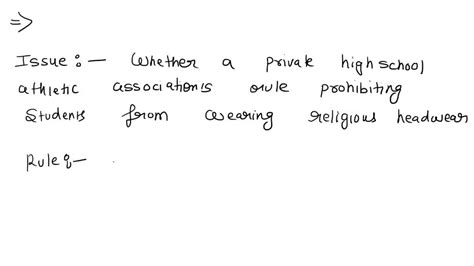 =>
Issue :- Whether a private high school
athletic association's rule prohibiting
students from wearing religious headwear
Rule :-